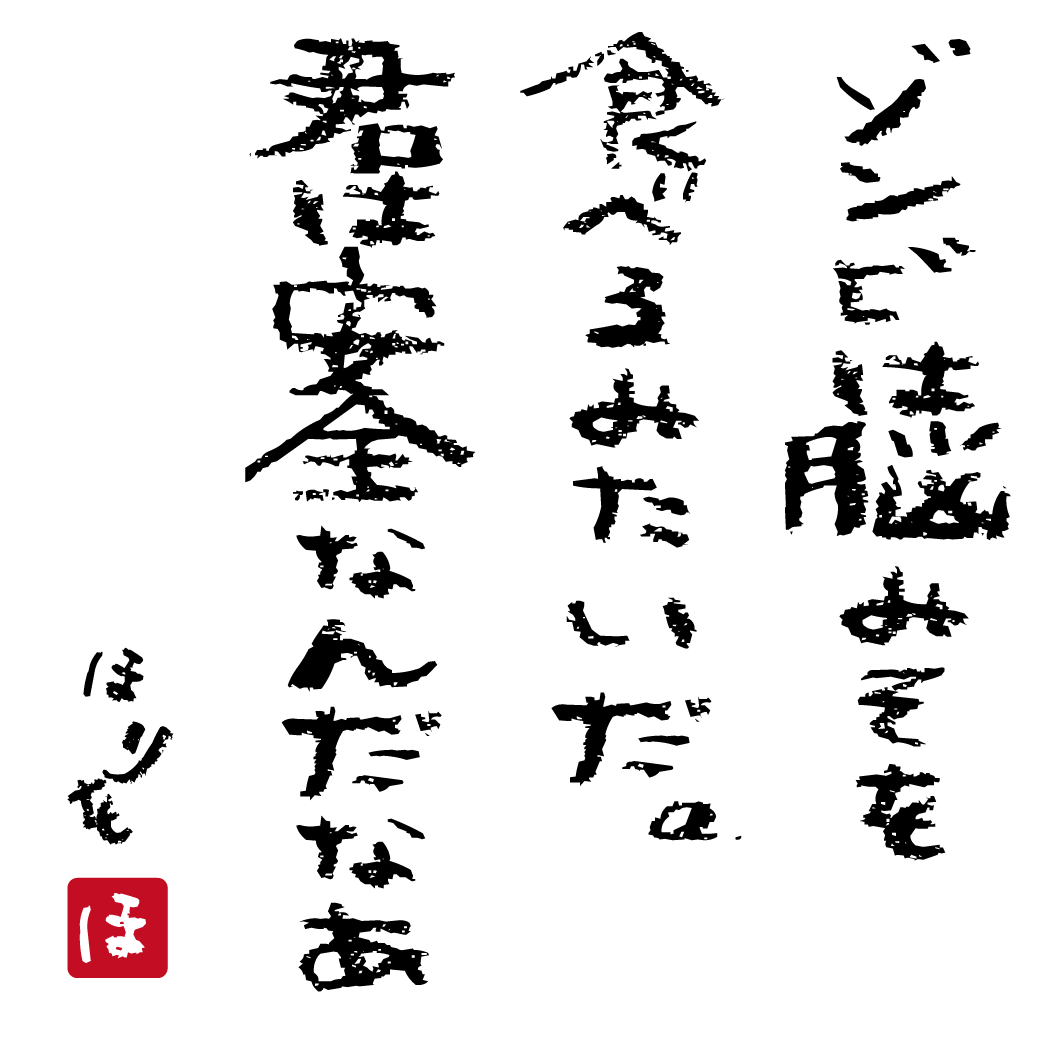 ゾンビは脳みそを
食べるみたいだ。
君は安全なんだなあ
ほりを
ほ